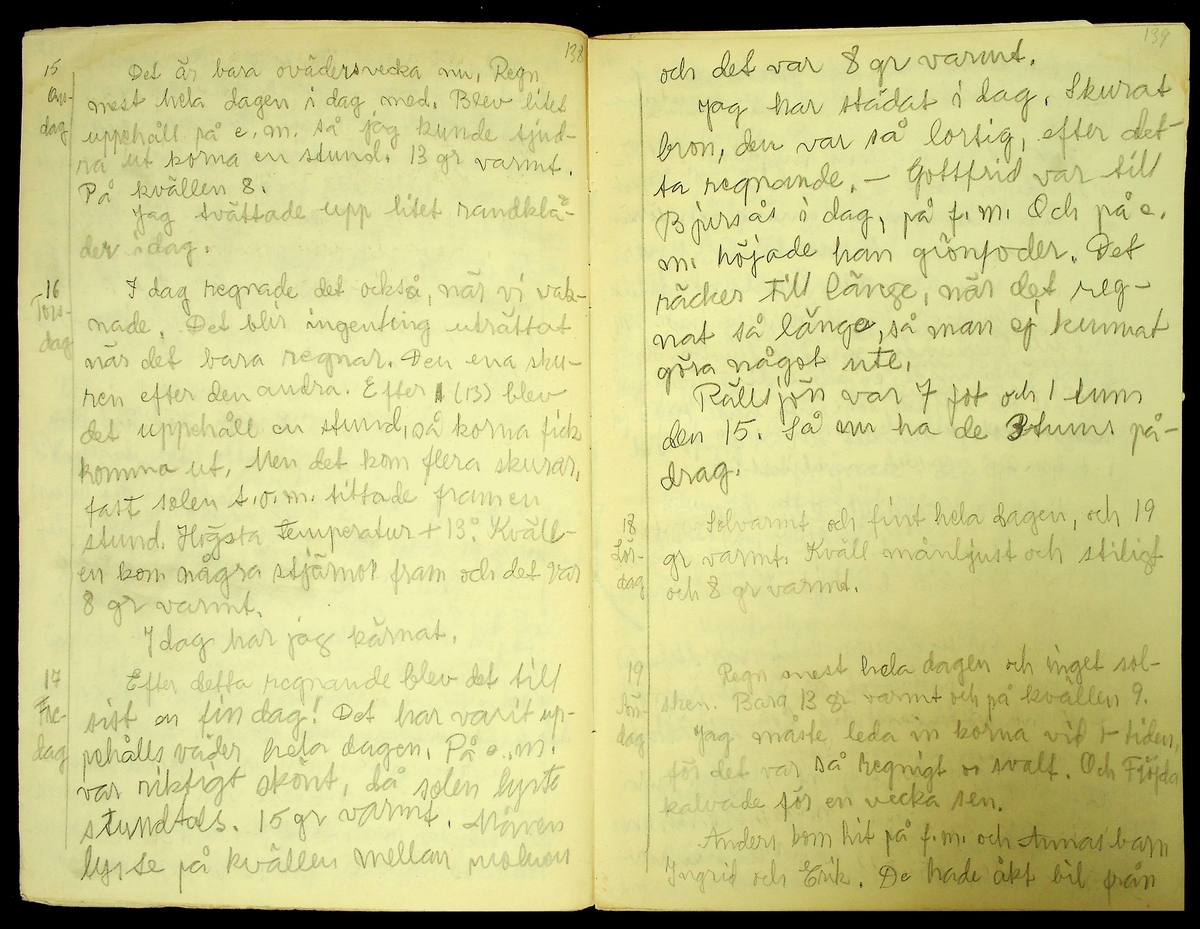 138
15 Ons-dag
Det är bara ovädersvecka nu. Regn
mest hela dagen i dag med. Blev litet
uppehåll på e.m. så jag kunde tjud-
ra ut korna en stund. 13 gr varmt.
På kvällen 8.
Jag tvättade upp litet randklä-
der i dag.
16 Tors-dag
I dag regnade det också, när vi vak-
nade. Det blir ingenting uträttat
när det bara regnar. Den ena sku-
ren efter den andra. Efter 1 (13) blev
det uppehåll en stund, så korna fick
komma ut. Men det kom flera skurar,
fast solen t.o.m. tittade fram en
stund. Högsta temperatur +13°. Kväll-
en kom några stjärnor fram och det var
8 gr varmt.
I dag har jag kärnat.
17 Fre-dag
Efter detta regnande blev det till
sist en fin dag! Det har varit up-
pehålls väder hela dagen. På e.m.
var riktigt skönt, då solen lyste
stundtals. 15 gr varmt. Månen
lyste på kvällen mellan molnen
139
och det var 8 gr varmt.
Jag har städat i dag. Skurat
bron, den var så lortig, efter det-
ta regnande. – Gottfrid var till
Bjursås i dag, på f.m. Och på e.
m. höjade han grönfoder. Det
räcker till länge, när det reg-
nat så länge, så man ej kunnat
göra något ute.
Rällsjön var 7 fot och 1 tum
den 15. Så nu ha de 3 tums på-
drag.
18 Lör-dag
Solvarmt och fint hela dagen, och 19
gr varmt. Kväll månljust och stiligt
och 8 gr varmt.
19 Sön-dag
Regn mest hela dagen och inget sol-
sken. Bara 13 gr varmt och på kvällen 9.
Jag måste leda in korna vid 4-tiden,
för det var så regnigt o svalt. Och Fröjda
kalvade för en vecka sen.
Anders kom hit på f.m. och Annas barn
Ingrid och Erik. De hade åkt bil från